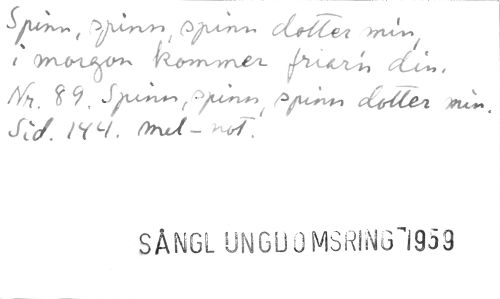 Spinn, spinn, spinn dotter min,
i morgon kommer friar'n din.
Nr. 89. Spinn, spinn, spinn dotter min.
Sid. 144. mel-not.
SÅNGL UNGDOMSRING 1959